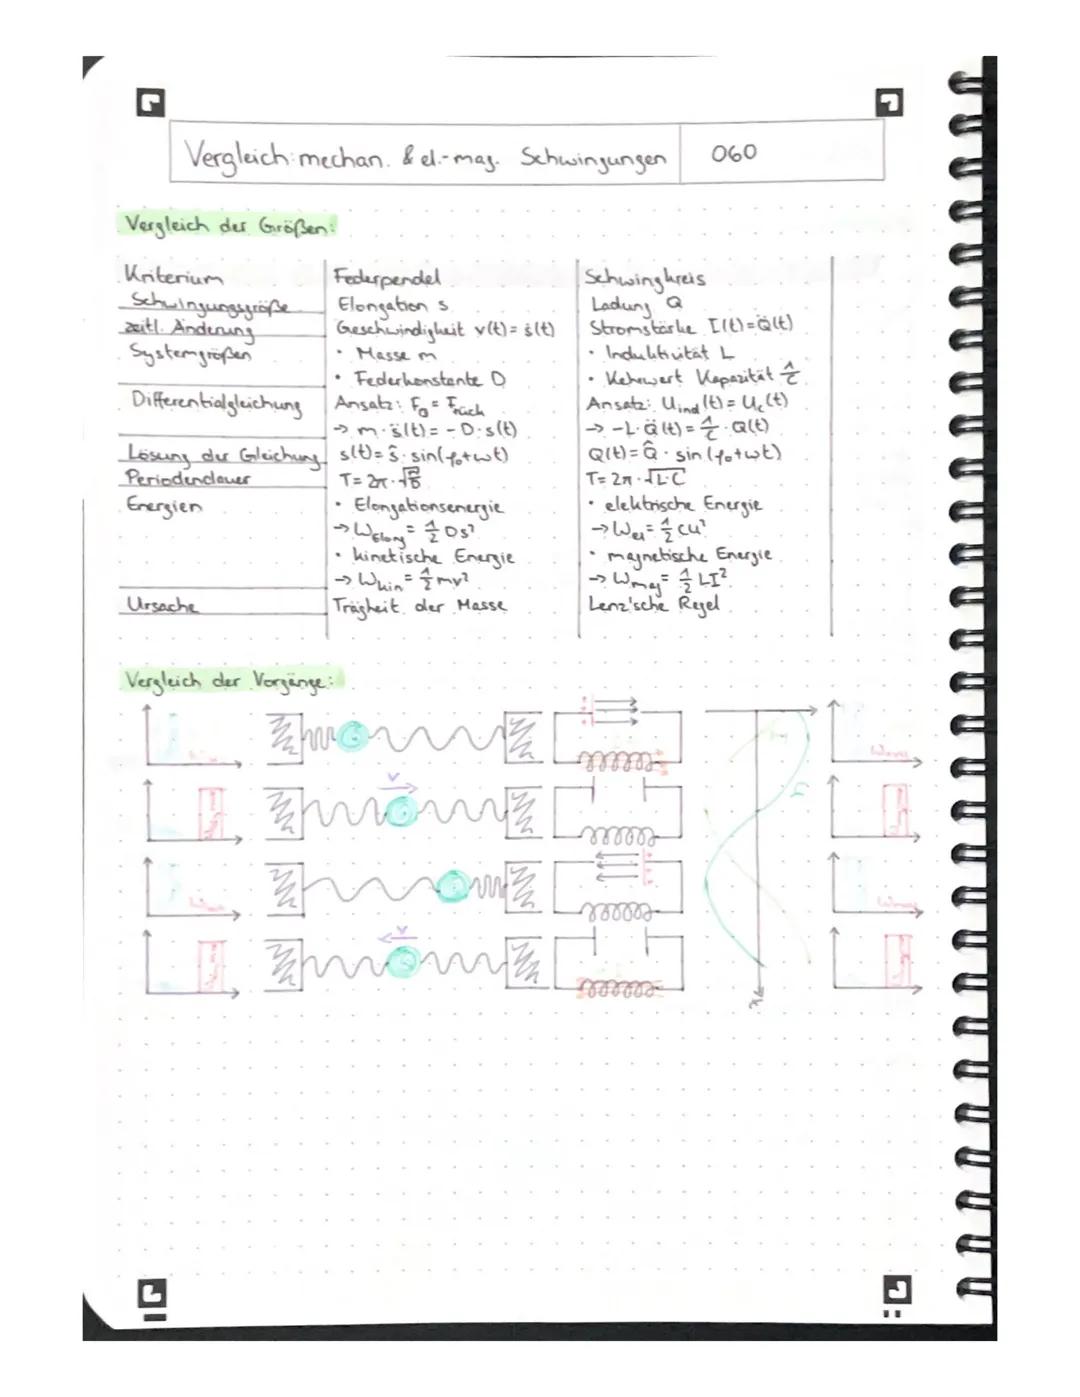 Vergleich: mechan. & el.-mag. Schwingungen 060
Vergleich der Größen:
Kriterium Federpendel Schwingkreis
Schwingungsgröße Elongation s Ladung Q
zeitl. Änderung Geschwindigkeit v(t) = ṡ(t) Stromstärke I(t) = Q̇(t)
Systemgrößen • Masse m • Induktivität L
• Federkonstante D • Kehrwert Kapazität 1/C
Differentialgleichung Ansatz: Fa = Frück Ansatz: Uind(t) = Uc(t)
→ m · s̈(t) = - D · s(t) → -L · Q̈(t) = 1/C · Q(t)
Lösung der Gleichung s(t) = ŝ · sin(φ₀+ωt) Q(t) = Q̂ · sin(φ₀+ωt)
Periodendauer T = 2π · √m/D T = 2π · √L·C
Energien • Elongationsenergie • elektrische Energie
→ WElong = 1/2 Ds² → Wel = 1/2 CU²
• kinetische Energie • magnetische Energie
→ Wkin = 1/2 mv² → Wmag = 1/2 LI²
Ursache Trägheit der Masse Lenz'sche Regel
Vergleich der Vorgänge:
v
v